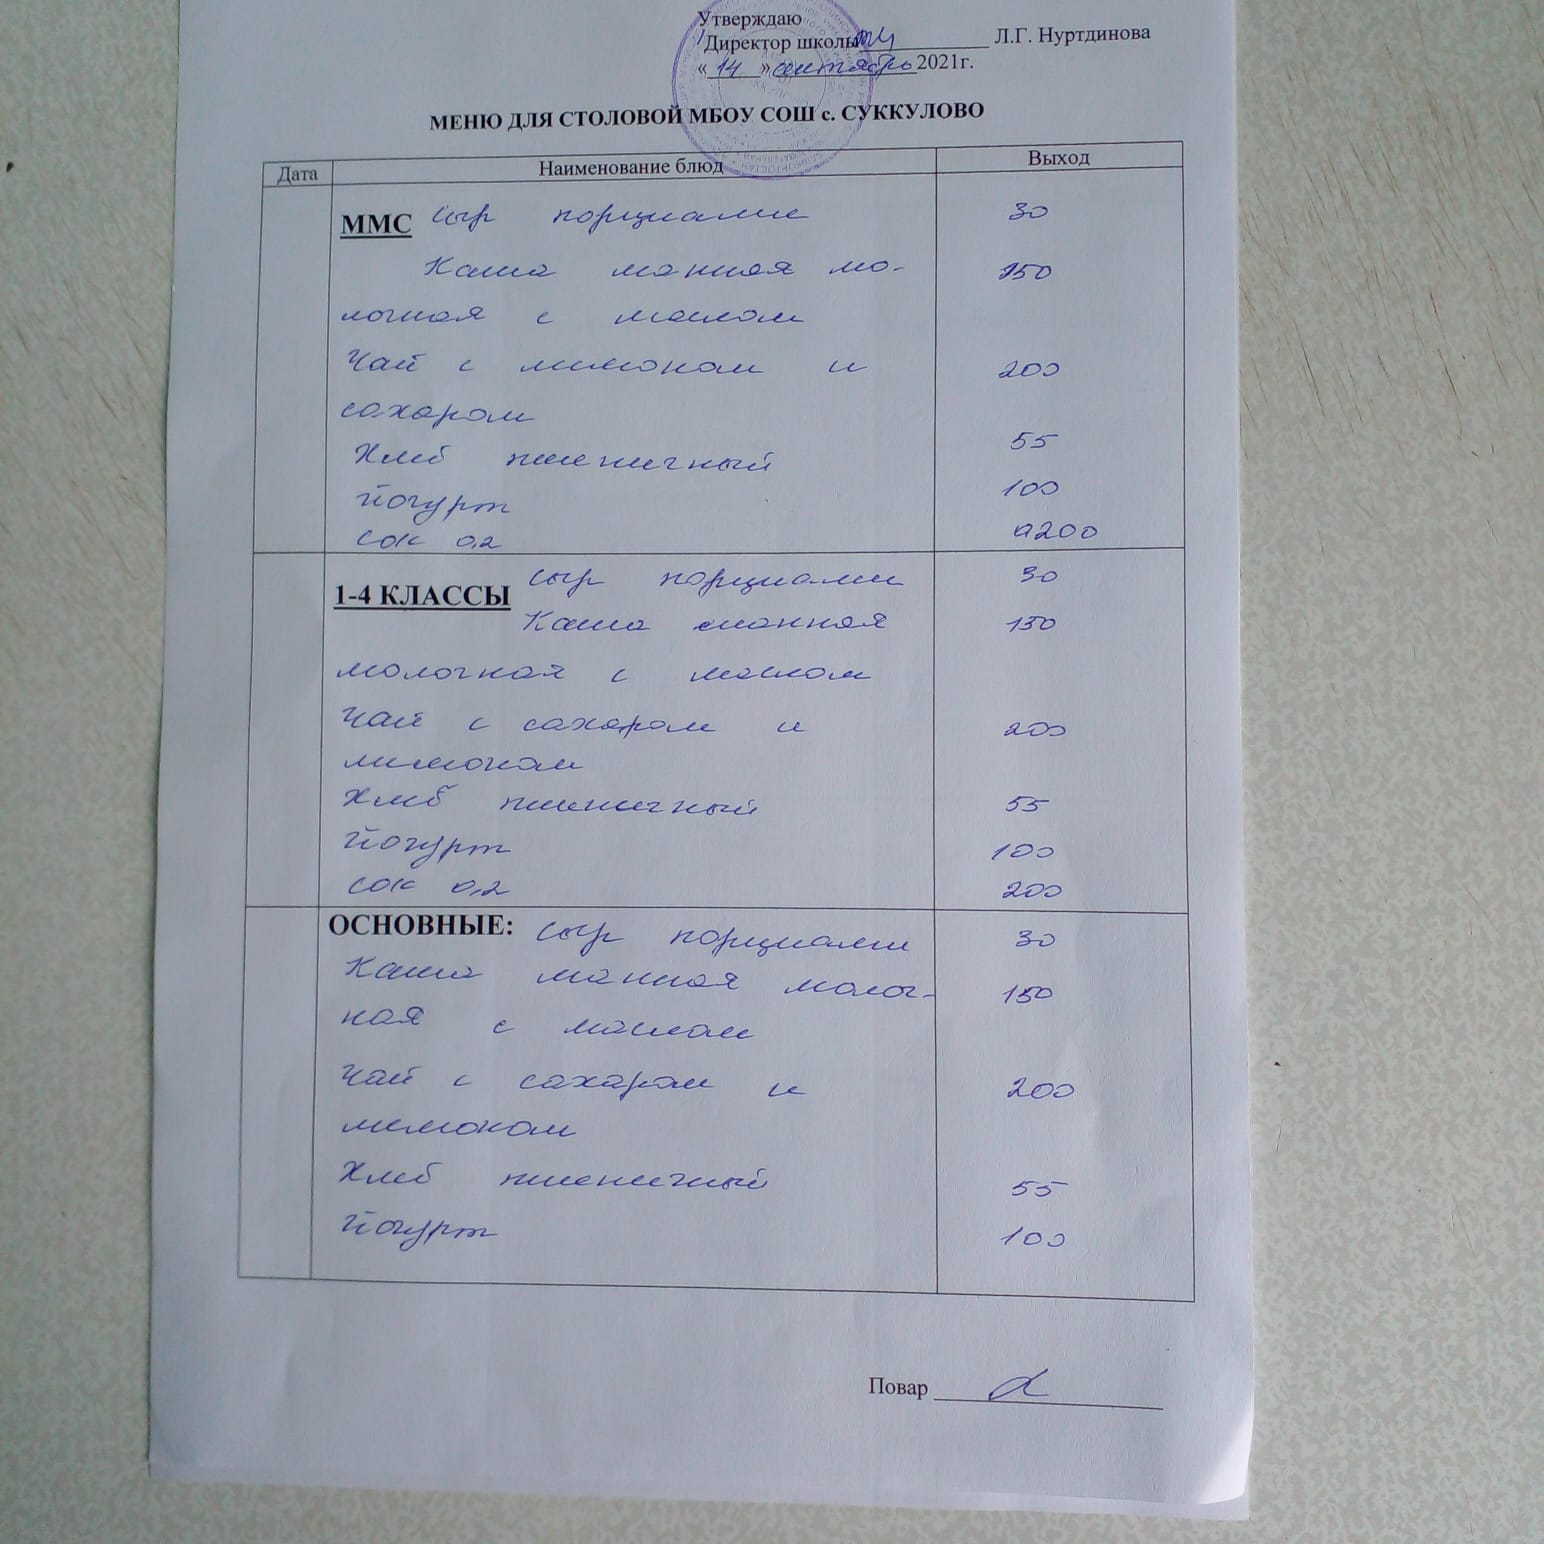 Утверждаю
Директор школы ____________ Л.Г. Нуртдинова
« 14 » сентябрь 2021г.
МЕНЮ ДЛЯ СТОЛОВОЙ МБОУ СОШ с. СУККУЛОВО
Дата Наименование блюд Выход
ММС сыр порциями 30
Каша манная мо- 150
лочная с маслом
Чай с лимоном и 200
сахаром
Хлеб пшеничный 55
йогурт 100
сок 0,2 200
1-4 КЛАССЫ сыр порциями 30
Каша манная 150
молочная с маслом
Чай с сахаром и 200
лимоном
Хлеб пшеничный 55
йогурт 100
сок 0,2 200
ОСНОВНЫЕ: сыр порциями 30
Каша манная молоч- 150
ная с маслом
Чай с сахаром и 200
лимоном
Хлеб пшеничный 55
йогурт 100
Повар